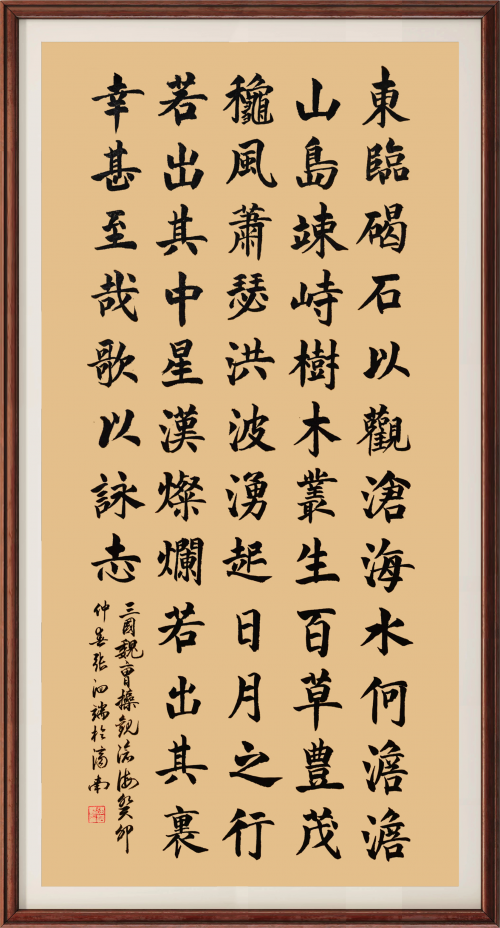 東臨碣石以觀滄海水何澹澹
山島竦峙樹木叢生百草豊茂
龝風蕭瑟洪波湧起日月之行
若出其中星漢燦爛若出其裏
幸甚至哉歌以詠志
三國魏曹操觀滄海癸卯
仲春張泗端於濟南